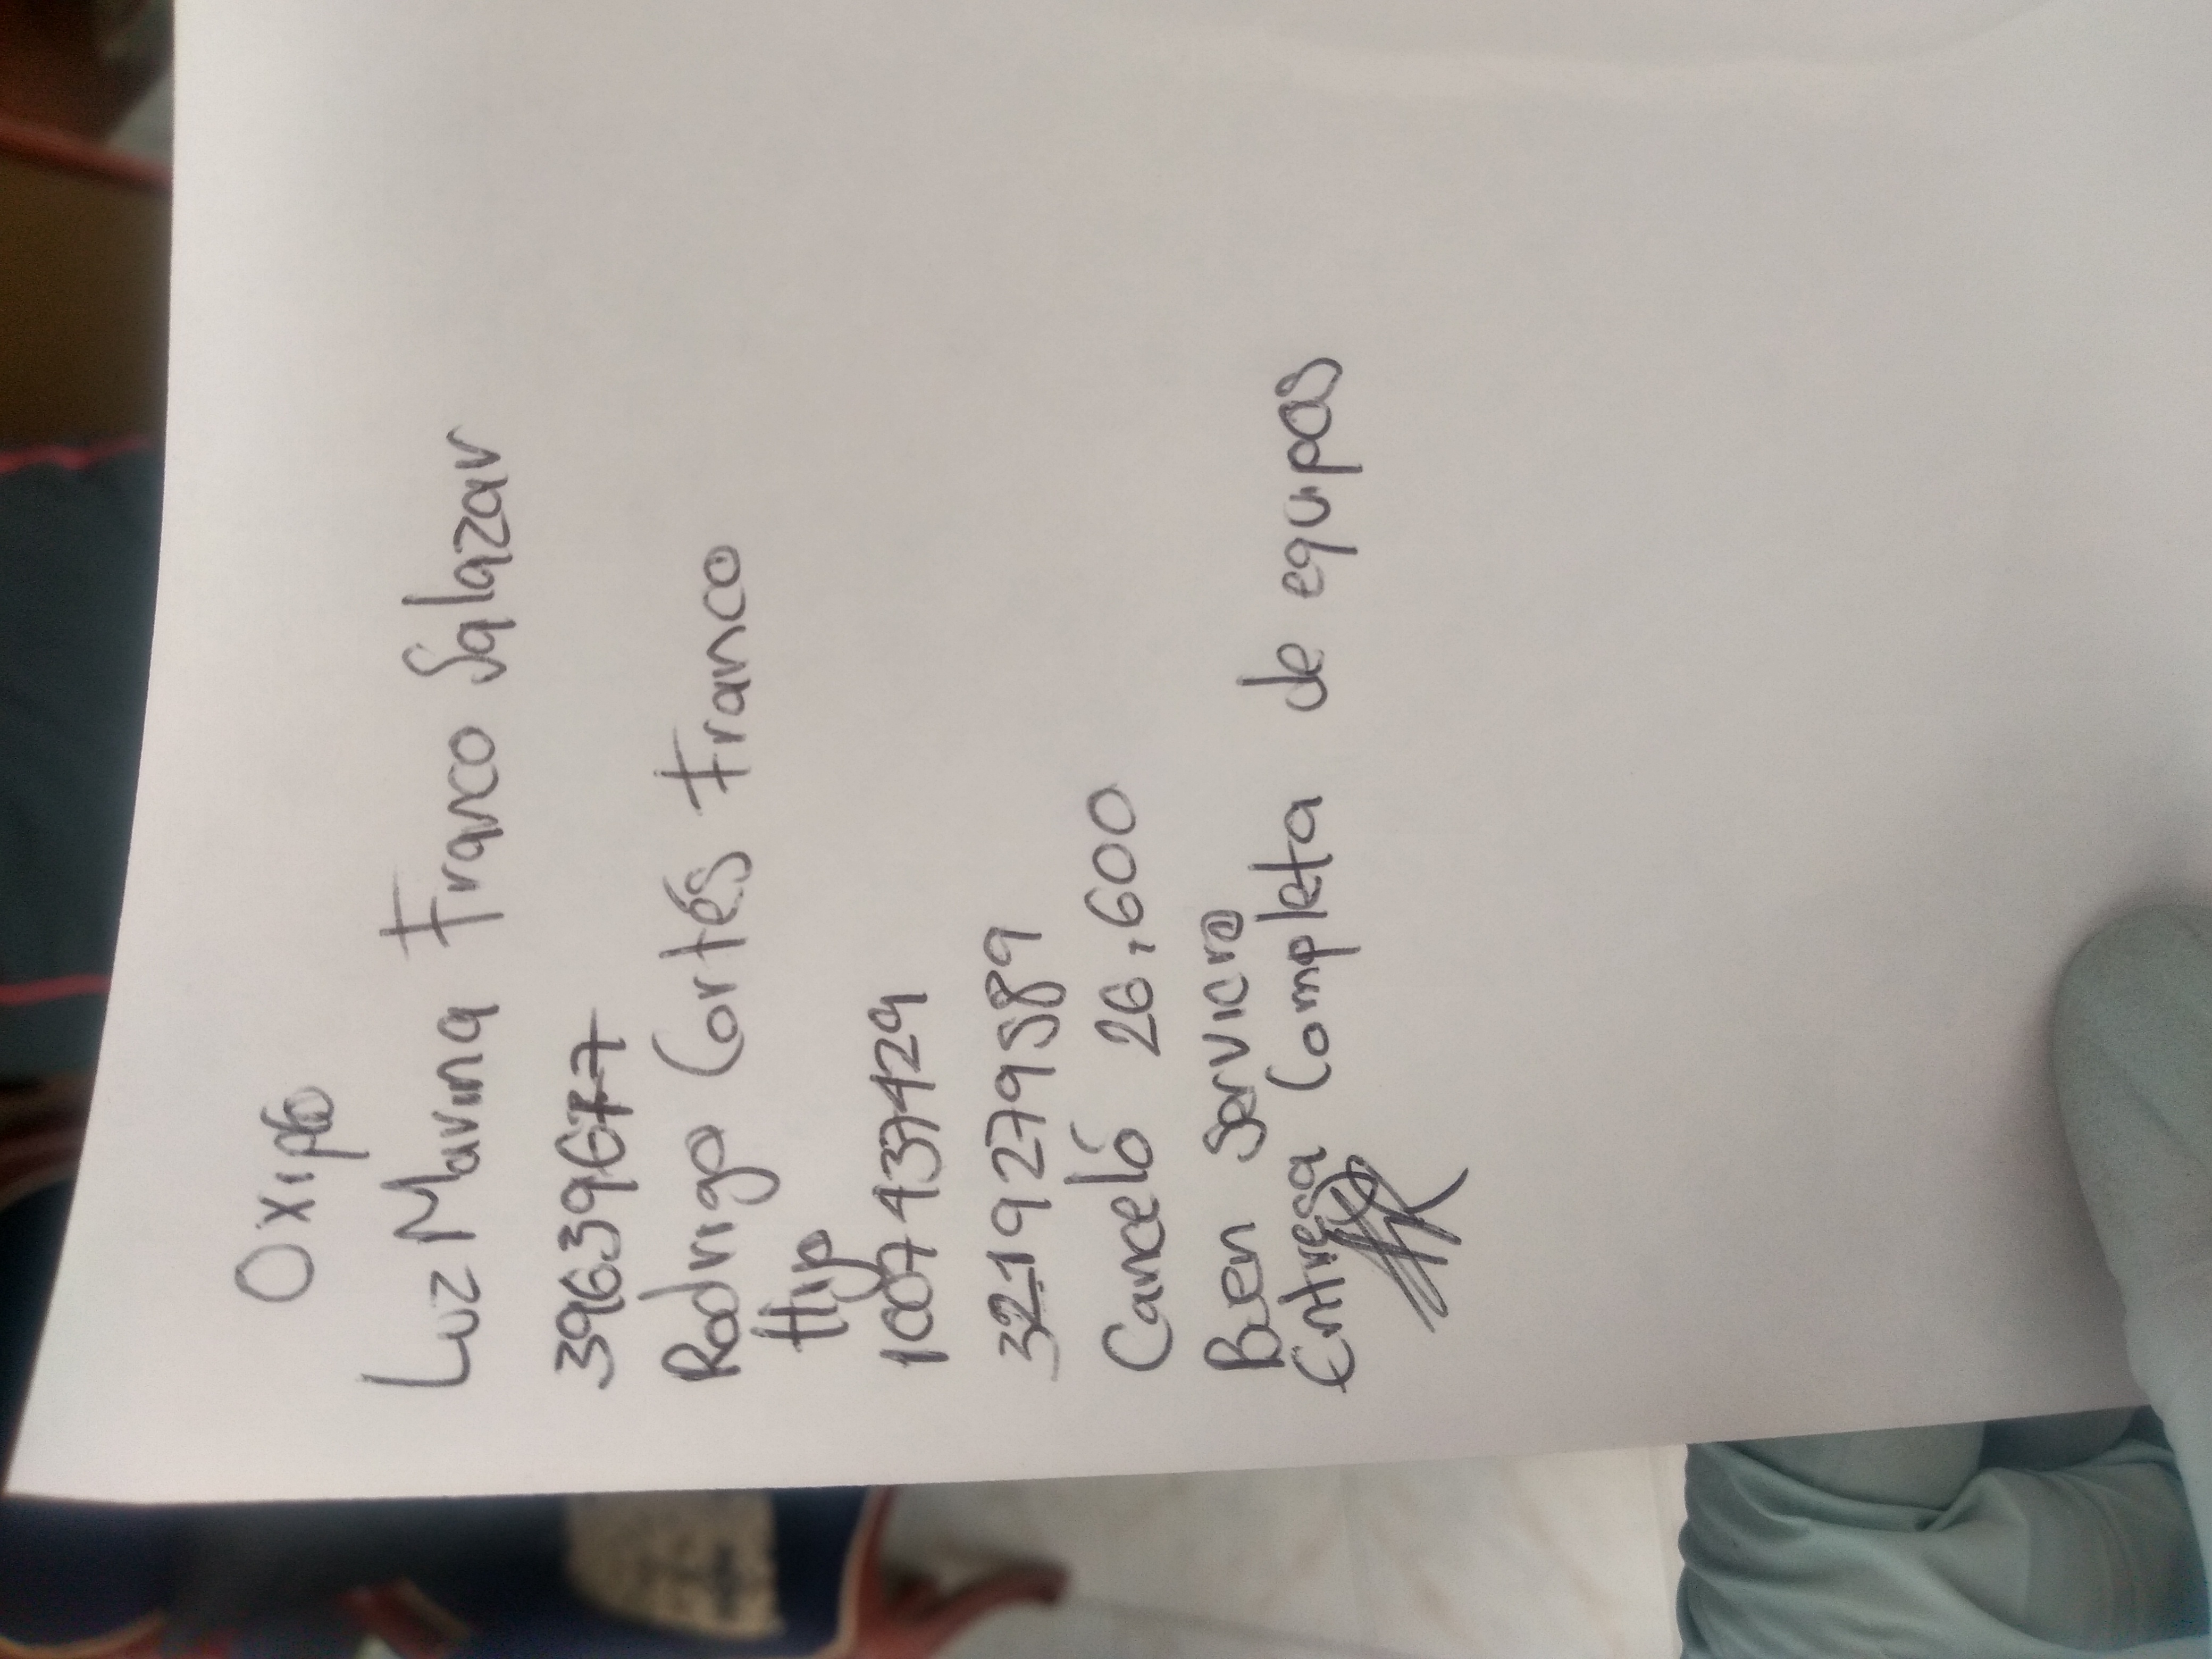 Oxipro
Luz Marina Franco Salazar
39639677
Rodrigo Cortés Franco
Hijo
1007437429
3219279589
Canceló 26,600
Buen servicio
Entrega Completa de equipos